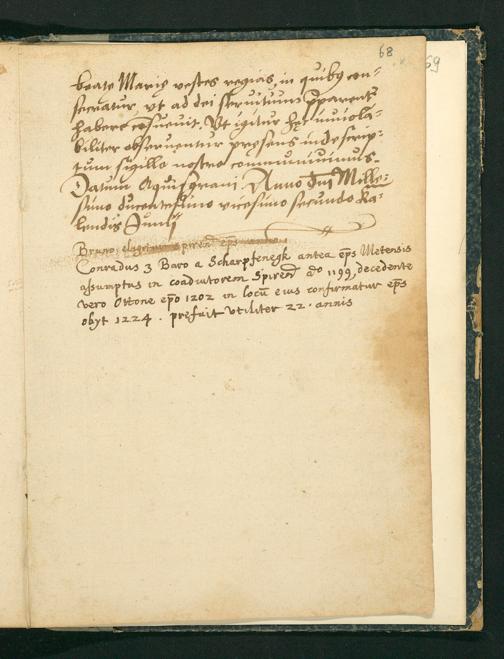 68
59
beate Marię vestes regias, in quibus con-
secratur, ut ad dei seruitium pparent
habere consueuit. Ut igitur hęc inuiola-
biliter obseruentur pręsens inde scrip-
tum sigillo nostro communiuimus.
Datum Aquisgrani Anno Dni Mille-
simo ducentesimo vicesimo secundo Ka-
lendis Junij
Bruno eps
Conradus 3 Baro a Scharpfenegk antea eps Metensis
assumptus in coadiutorem Spiren ao 1199, decedente
vero Ottone epo 1202 in locu eius confirmatur eps
obyt 1224 . prefuit utiliter 22 . annis